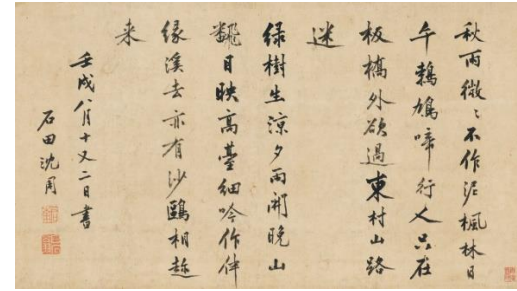 秋雨微〻不作泥楓林日
午鵓鳩啼行人只在
板橋外欲過東村山路
迷
緑樹生涼夕雨開晚山
飜日映高臺細吟作伴
緣溪去亦有沙鷗相趂
来
壬戌八月十又二日書
石田沈周